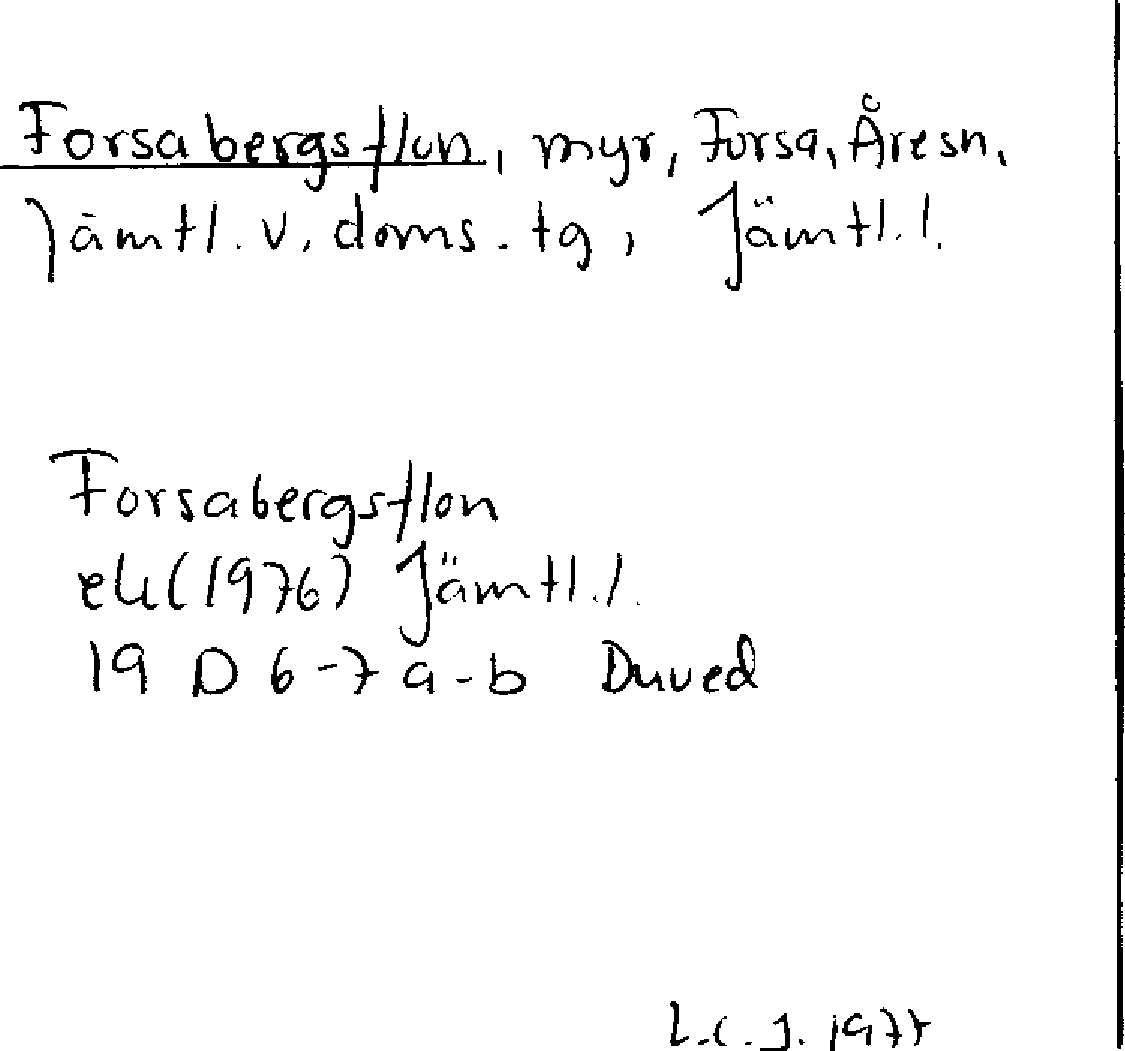 Forsabergsflon, myr, Forsa, Åresn,
Jämtl. v. doms. tg, Jämtl. l.
Forsabergsflon
ek (1976) Jämtl. l.
19 D 6-7 a-b Duved
L.C.J.